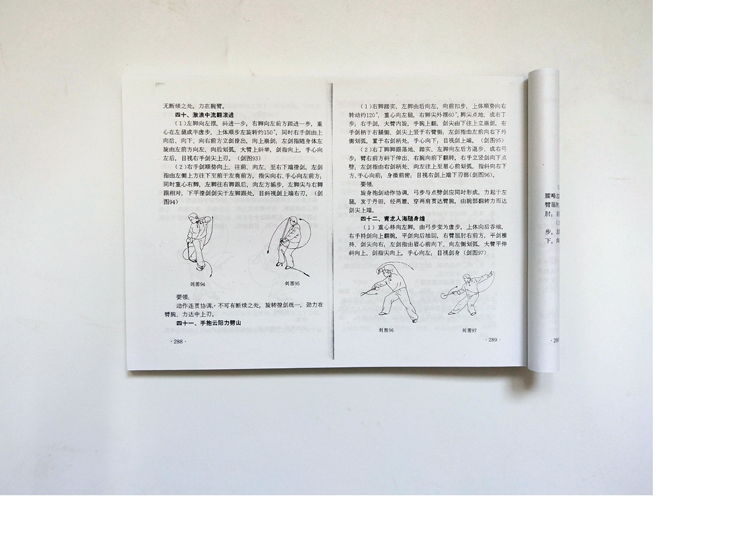 无断续之处。力在腕臂。
四十、激浪中流翻滚进
(1)左脚向左摆，斜进一步，右脚向左前方跟进一步，重
心在左腿成半虚步，上体顺步左旋转约150°，同时右手剑由上
向后、向下、向右前方立剑撩出，向上崩剑，左剑指随身体左
旋由左前方向左、向后划弧，大臂上斜举，剑指向上，手心向
左后，目视右手剑尖上刃。(剑图93)
(2)右手剑顺势向上、往前、向左、至右下端撩剑，左剑
指由左侧上方往下至前于左肩前方，指尖向右，手心向左前方，
同时重心右脚，左脚往右脚跟后，向左方插步，左脚尖与右脚
跟相对，下平撩剑剑尖于左脚跟处，目斜视剑上端右刃。(剑
图94)
剑图94
剑图95
要领:
动作连贯协调，不可有断续之处，旋转撩剑统一，劲力在
臂腕，力达中上刃。
四十一、手抱云阳力劈山
·288·
(1)右脚踏实，左脚由后向左、向前扣步，上体顺势向右
转动约120°，重心向左腿，右脚尖外摆60°，脚尖点地，成右丁
步，右手剑，大臂内旋，手腕上翻，剑尖由下往上立崩剑，右
手剑柄于右腿侧，剑尖上竖于右臂侧；左剑指由左前向右下外
侧划弧，置于右剑柄处，手心向下，目视剑上端。(剑图95)
(2)右丁脚脚跟落地，踏实，左脚向左后方退步，成右弓
步，臂右前方斜下伸出，右腕向前下翻转，右手立竖剑向下点
劈，左剑指由右剑柄处、向左往上至眉心前划弧，指斜向右下
方，手心向前，身推前倾，目视右剑上端下刃部(剑图96)。
要领:
旋身抱剑动作协调，弓步与点劈剑应同时形成，力起于左
腿，发于丹田，经两腰，穿两肩贯达臂腕，由腕部翻转力而达
剑尖上端。
四十二、青龙入海随身缠
(1)重心移向左脚，由弓步变为虚步，上体向后吞地，
右手持剑向上翻腕，平剑向后抽回，右臂屈肘右前方，平剑横
持，剑尖向右，左剑指由眉心前向下、向左侧划弧，大臂平伸
斜向上，剑指尖向上，手心向左，目视剑身(剑图97)
剑图96
剑图97
·289·